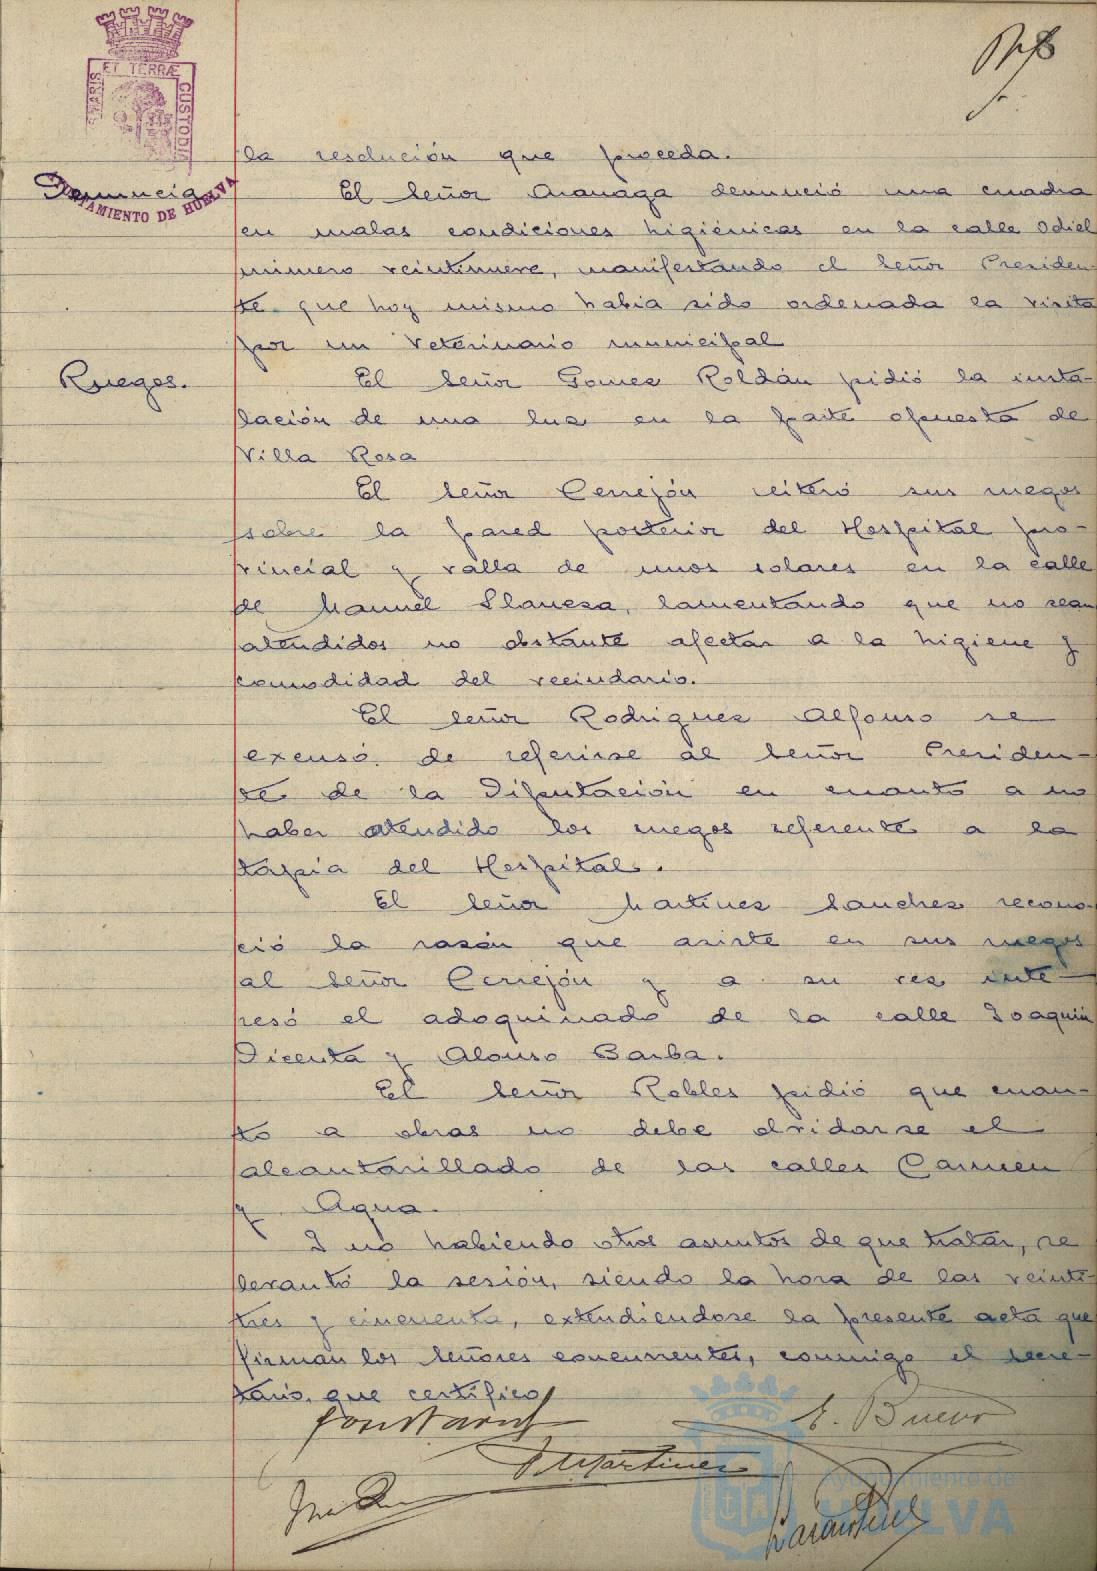 ET TERRÆ
MARIS
CUSTODIA
la resolución que proceda.
Denuncia
AYUNTAMIENTO DE HUELVA
El Señor Aranaga denunció una cuadra
en malas condiciones higiénicas en la calle Odiel
número veintinueve, manifestando el Señor Presiden-
te que hoy mismo habia sido ordenada la visita
por un Veterinario municipal
Ruegos.
El Señor Gomez Roldán pidió la insta-
lación de una luz en la parte opuesta de
Villa Rosa
El Señor Cerrejón reiteró sus ruegos
sobre la pared posterior del Hospital pro-
vincial y valla de unos solares en la calle
de Manuel Slaneza, lamentando que no sean
atendidos no obstante afectar a la higiene y
comodidad del vecindario.
El Señor Rodriguez Alfonso se
excusó de referirse al Señor Presiden-
te de la Diputación en cuanto a no
haber atendido los ruegos referente a la
tapia del Hospital.
El Señor Martinez Sanchez recono-
ció la razón que asiste en sus ruegos
al Señor Cerrejón y a su vez inte-
resó el adoquinado de la calle Joaquin
Dicenta y Alonso Barba.
El Señor Robles pidió que cuan-
to a obras no debe olvidarse el
alcantarillado de las calles Carmen
y Agua.
I no habiendo otros asuntos de que tratar, se
levantó la sesión, siendo la hora de las veinti-
tres y cincuenta, extendiendose la presente acta que
firman los Señores concurrentes, conmigo el secre-
tario, que certifico
E. Bueno
J Martinez
Ayuntamiento de
HUELVA